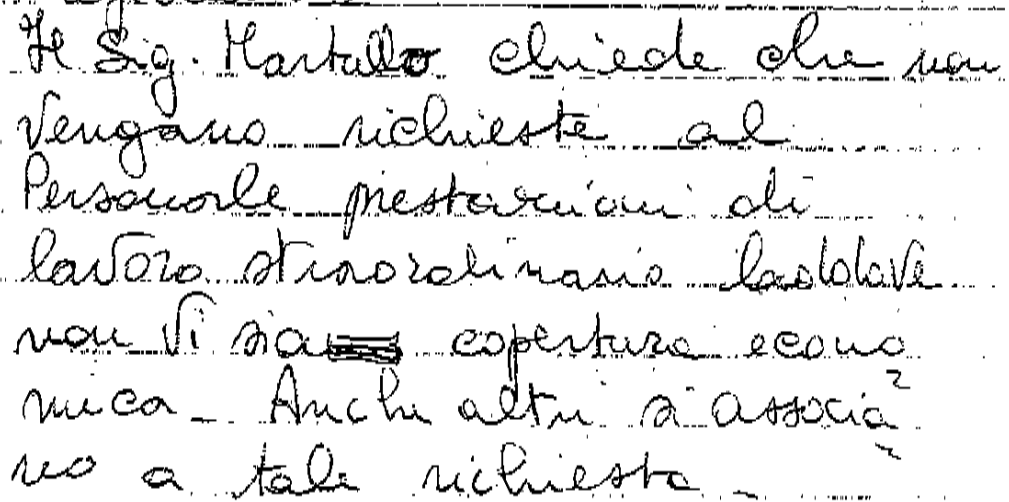 Il Sig. Martullo chiede che non
vengano richieste al
Personale prestazioni di
lavoro straordinario laddove
non vi sia copertura econo
mica - Anche altri si associa
no a tale richiesta -